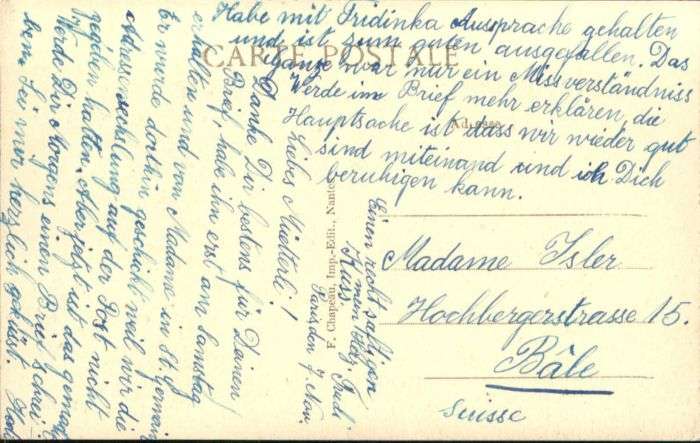 Habe mit Fridinka Aussprache gehalten
und ist zum guten ausgefallen. Das
ganze war nur ein Missverständniss
Werde im Brief mehr erklären, die
Hauptsache ist dass wir wieder gut
sind miteinand und ich Dich
beruhigen kann.
CARTE POSTALE
Adresse
Madame Isler
Hochbergerstrasse 15.
Bâle
Suisse
F. Chapeau, Imp.-Edit., Nantes
Paris den 7. Nov.
Liebes Mütterli!
Danke Dir bestens für Deinen
Brief, habe ihn erst am Samstag
erhalten und von Madame in St. Germain
Er wurde dorthin geschickt weil wir die
Adresswechslung auf der Post nicht
gegeben hatten. Aber jetzt ist das gemacht
Werde Dir Morgens einen Brief schrei
ben. Sei mir herzlich geküsst.
Einen recht saftigen
Kuss.